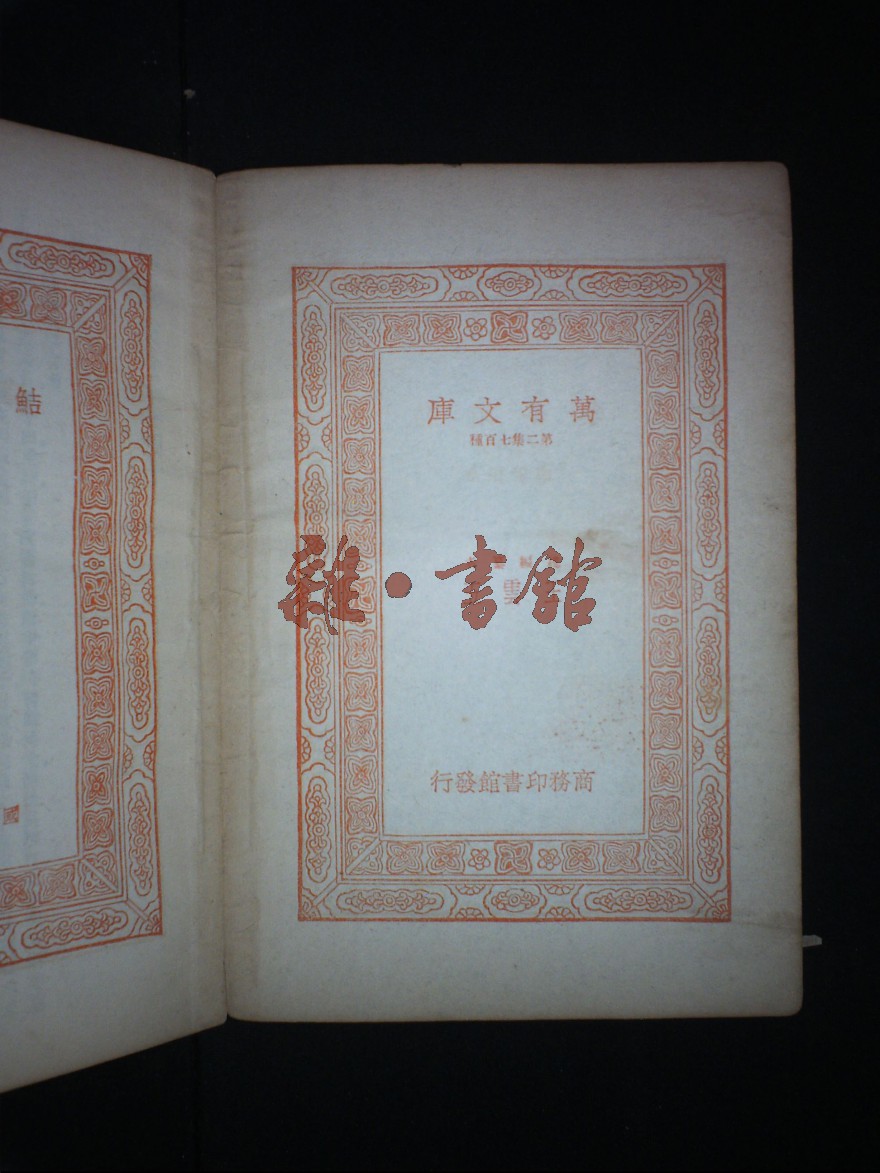 萬有文庫
第二集七百種
雜·書館
雲
商務印書館發行
鮚
國